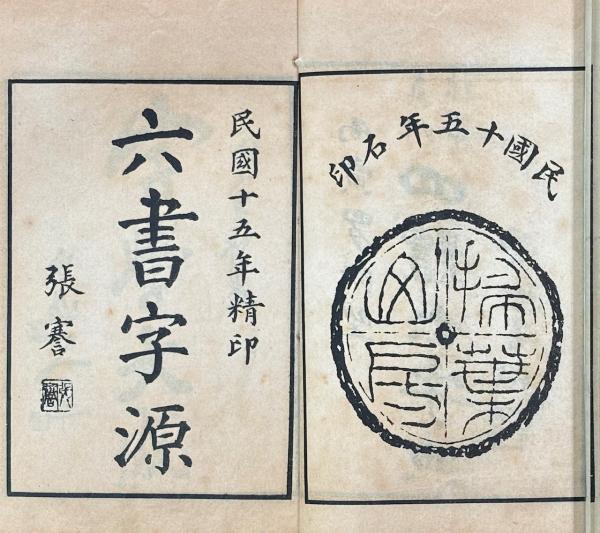 民國十五年石印
掃葉
山房
民國十五年精印
六書字源
張謇